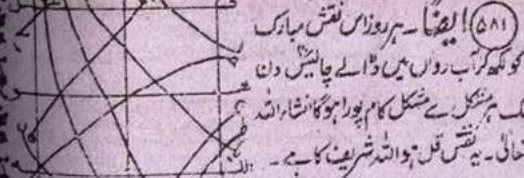 (۵۸۱) ایضاً ۔ ہر روز اس نقش مبارک
کو لکھ کر آب رواں میں ڈالے چالیس دن
ہر مشکل سے مشکل کام پورا ہو گا انشاء اللہ
تعالیٰ ۔ یہ نقش قل ہو اللہ شریف کا ہے ۔